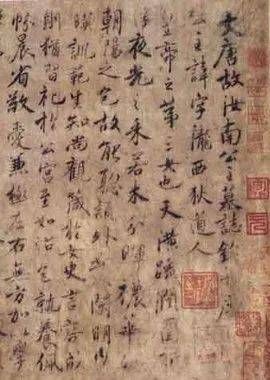 大唐故汝南公主墓誌銘并序
公主諱字隴西狄道人
皇帝之第三女也天潢疏潤圓折
浮夜光之采若木分暉穠華照
朝陽之色故能聰穎外發閑明內
映訓範生知尚觀箴於女史言容成
則猶習禮於公宮至如怡色就養佩
帉晨省敬愛兼極左右無方加以學